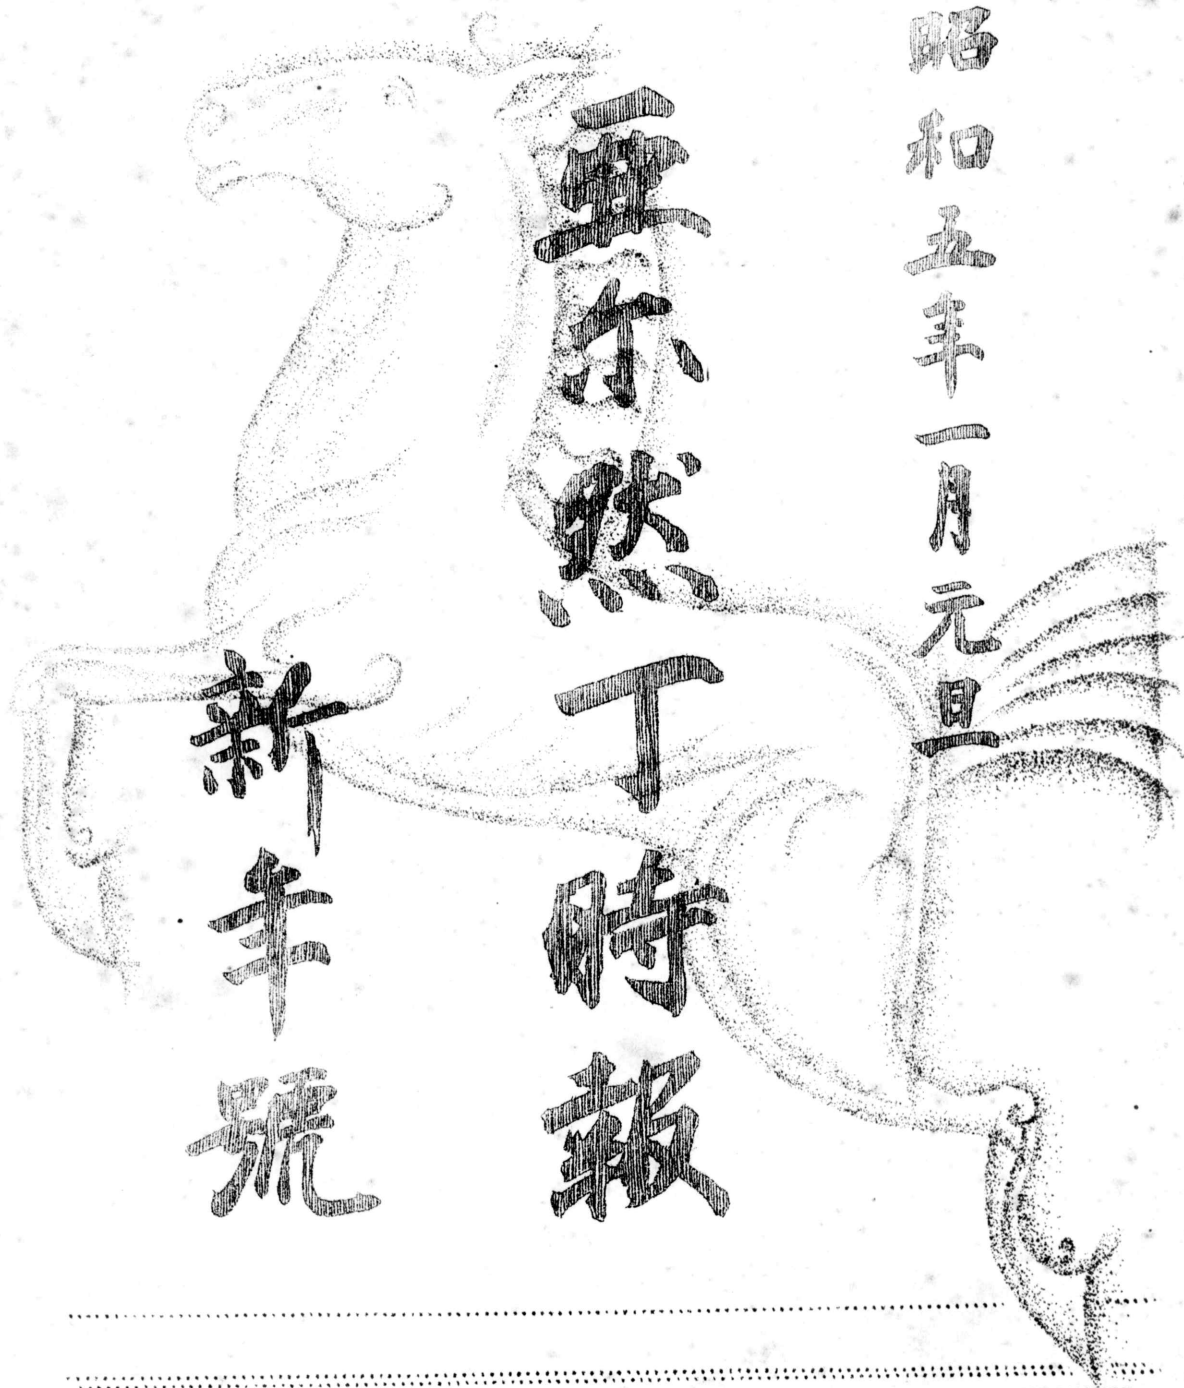 昭和五年一月元旦
亜尓然丁時報
新年號